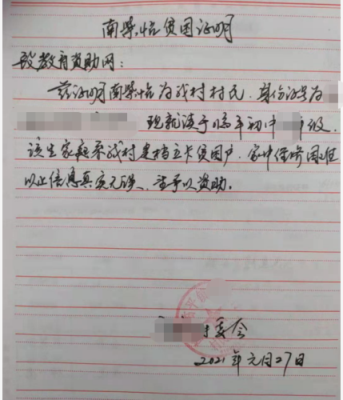 贫困证明
致教育资助网:
兹证明南 为我村村民,身份证号为
现就读于 初中 级
该生家庭系我村建档立卡贫困户,家中经济困难
以上信息真实无误,请予以资助。
委会
2021年元月27日